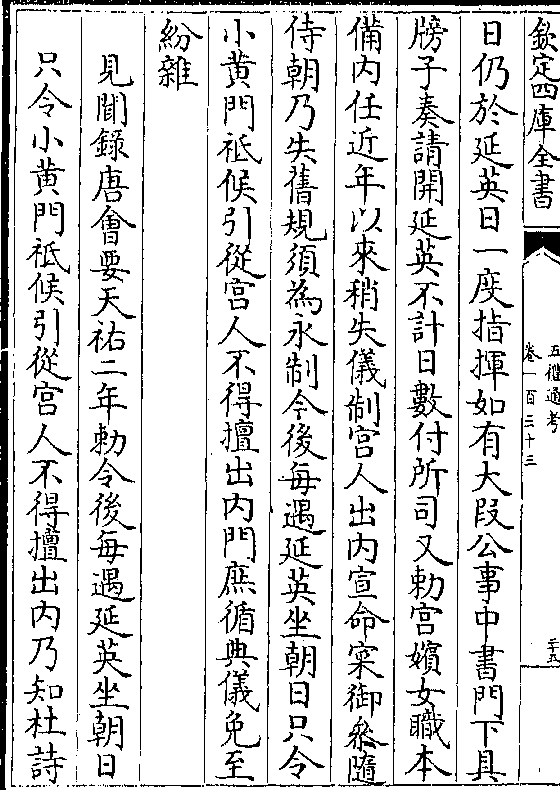 欽定四庫全書
五禮通考
卷一百三十三
三十五
日仍於延英日一度指揮如有大段公事中書門下具
牓子奏請開延英不計日數付所司又勅宮嬪女職本
備内任近年以來稍失儀制宮人出内宣命寀御叅隨
侍朝乃失舊規須為永制令後每遇延英坐朝日只令
小黄門祗候引從宮人不得擅出内門庶循典儀免至
紛雜
見聞錄唐㑹要天祐二年勅令後每遇延英坐朝日
只令小黄門祗候引從宮人不得擅出内乃知杜詩